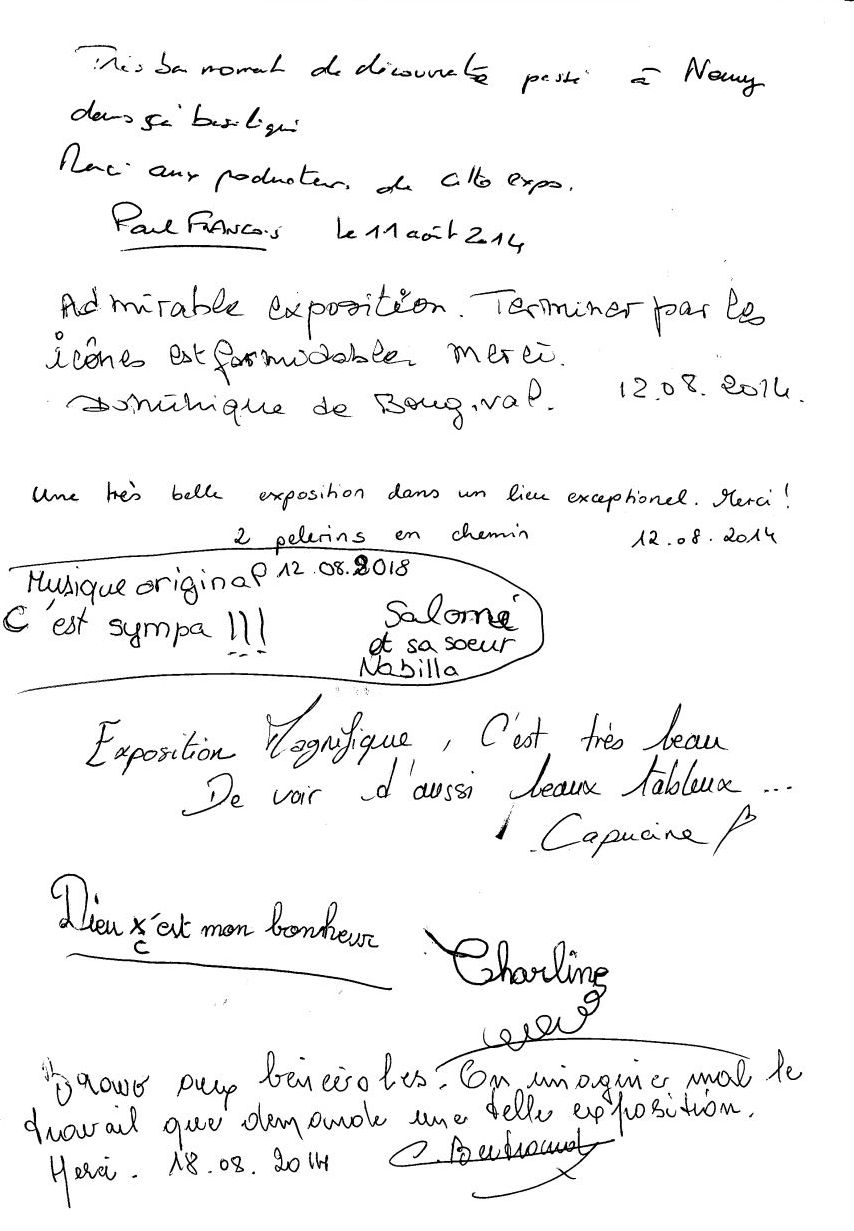 Très bon moment de découverte passé à Nancy
dans sa basilique
Merci aux producteurs de cette expo.
Paul FRANCOIS le 11 août 2014
Admirable exposition. Terminer par les
icônes est formidable. merci.
Dominique de Bougival. 12.08.2014.
Une très belle exposition dans un lieu exceptionel. Merci !
2 pelerins en chemin 12.08.2014
Musique original 12.08.2018
C'est sympa !!!
Salomé
et sa soeur
Nabilla
Exposition Magnifique, C'est très beau
De voir d'aussi beaux tableux ...
Capucine
Dieu c'est mon bonheur
Charline
Bravo aux bénévoles. On imagine mal le
travail que demande une telle exposition.
Merci. 18.08.2014 C. Bertrand